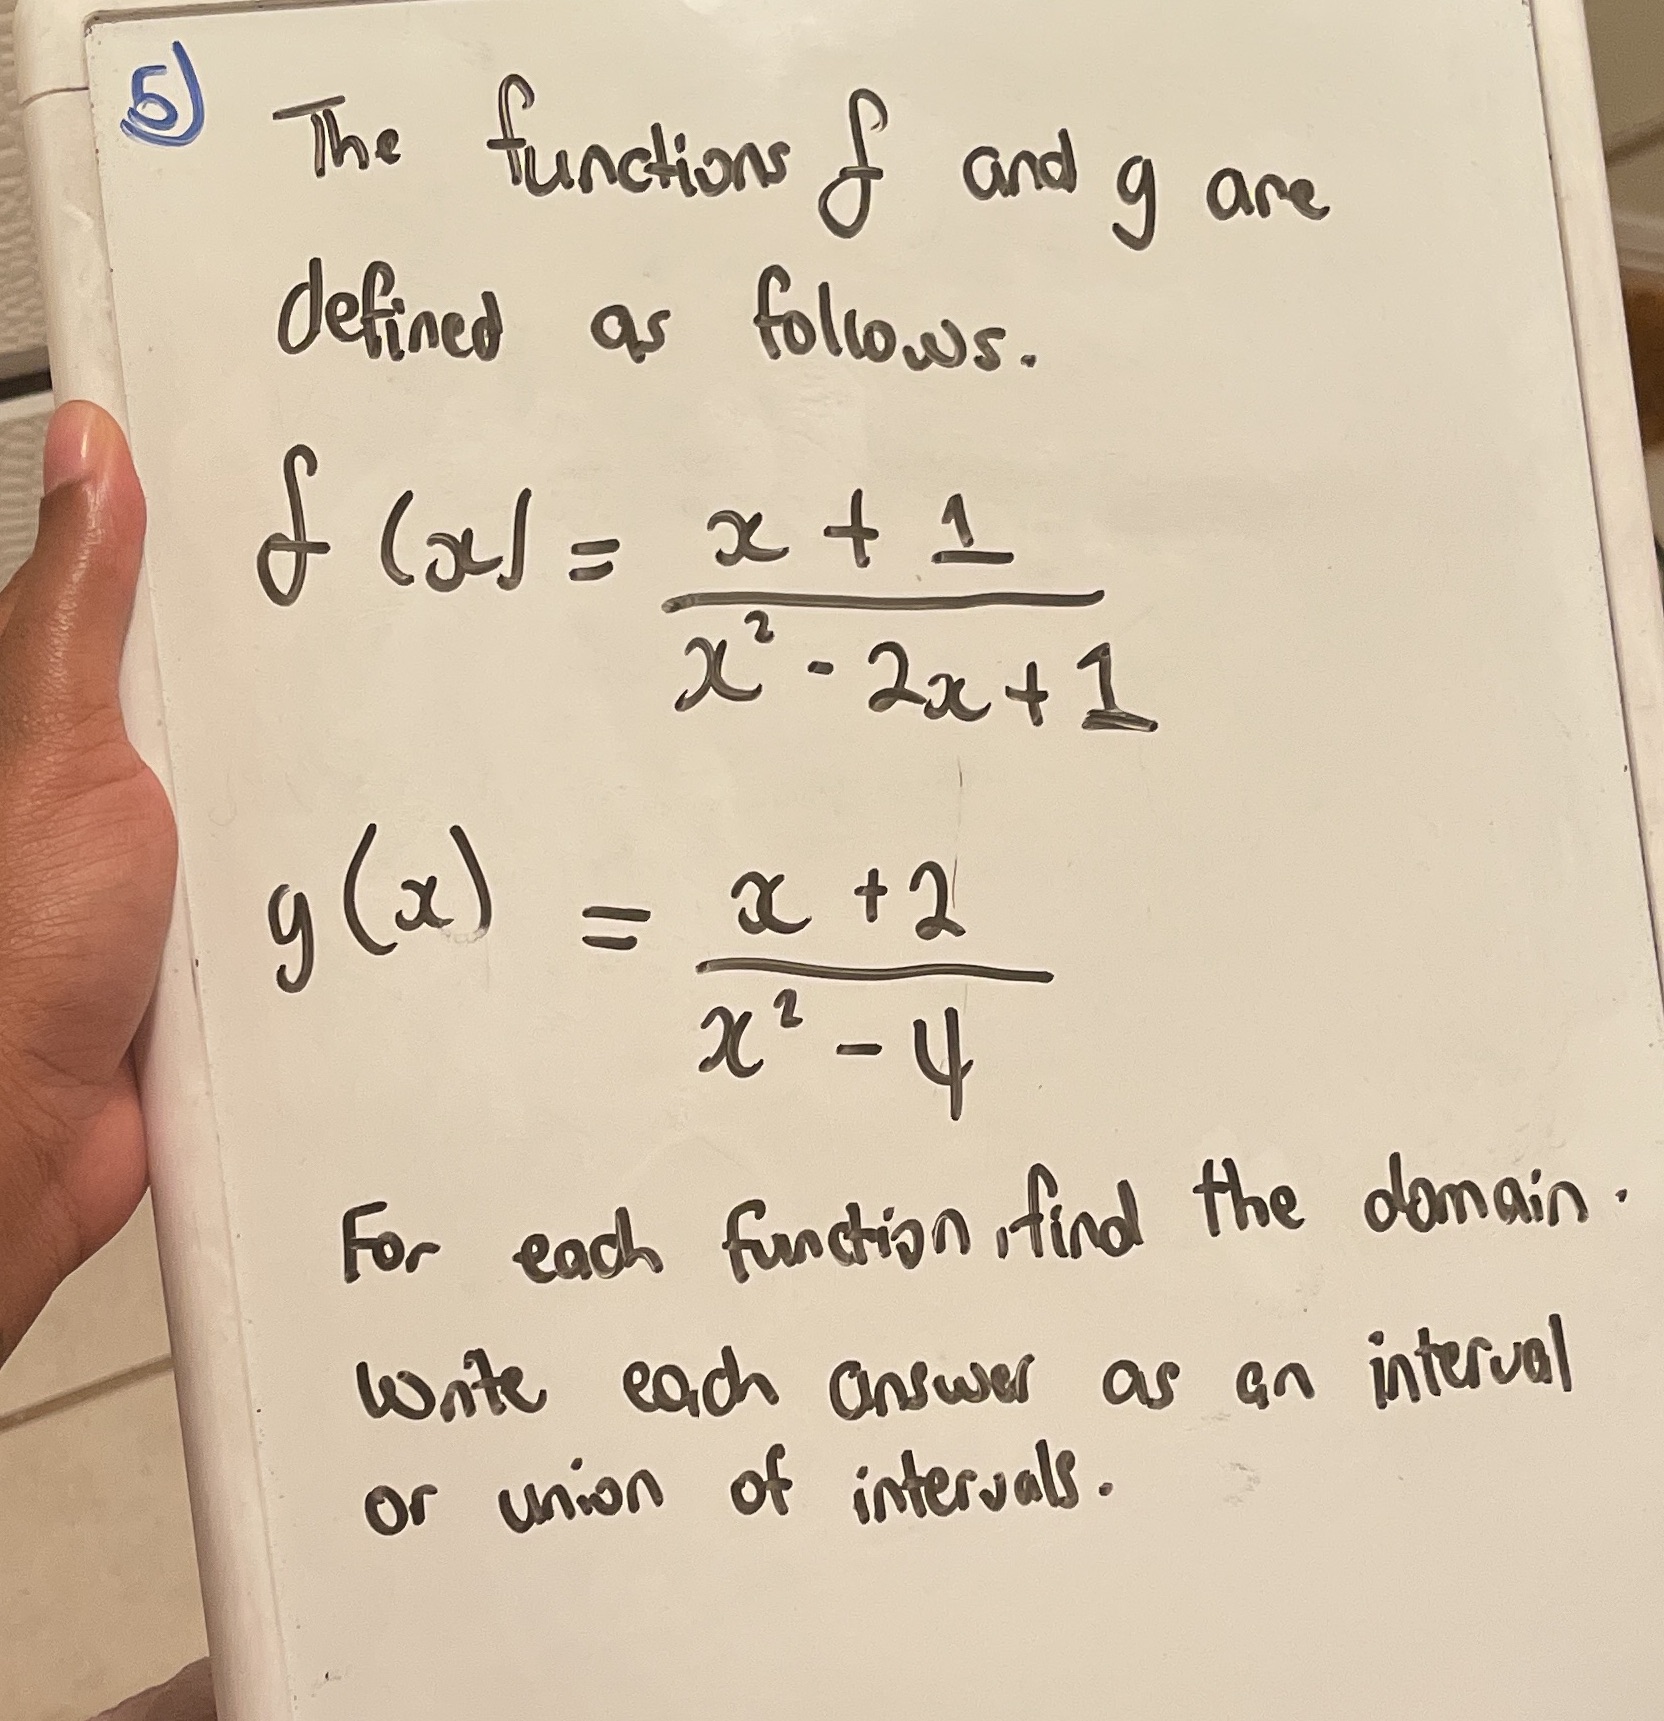 5)
The functions f and g are
defined as follows.
f(x) = x + 1
x² - 2x + 1
g(x) = x + 2
x² - 4
For each function, find the domain.
Write each answer as an interval
or union of intervals.